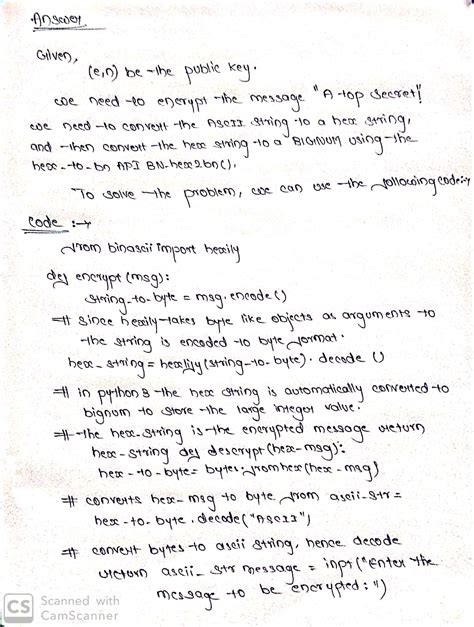 Answer.
Given,
(e,n) be the public key.
we need to encrypt the message "A top secret!"
we need to convert the ASCII string to a hex string,
and then convert the hex string to a BIGNUM using the
hex-to-bn API BN-hex2bn().
To solve the problem, we can use the following code:→
Code :→
from binascii import hexily
def encrypt (msg):
string-to-byte = msg.encode()
# Since hexily takes byte like objects as arguments to
the string is encoded to byte format.
hex-string = hexlify (string-to-byte). decode ()
# in python 3 the hex string is automatically converted to
bignum to store the large integer value.
# the hex-string is the encrypted message return
hex-string def descrypt (hex-msg):
hex-to-byte = bytes.fromhex (hex-msg)
# converts hex-msg to byte from ascii-str =
hex-to-byte.decode("ASCII")
# convert bytes to ascii string, hence decode
return ascii-str message = inpt ("Enter the
message to be encrypted: ")
CS Scanned with
CamScanner